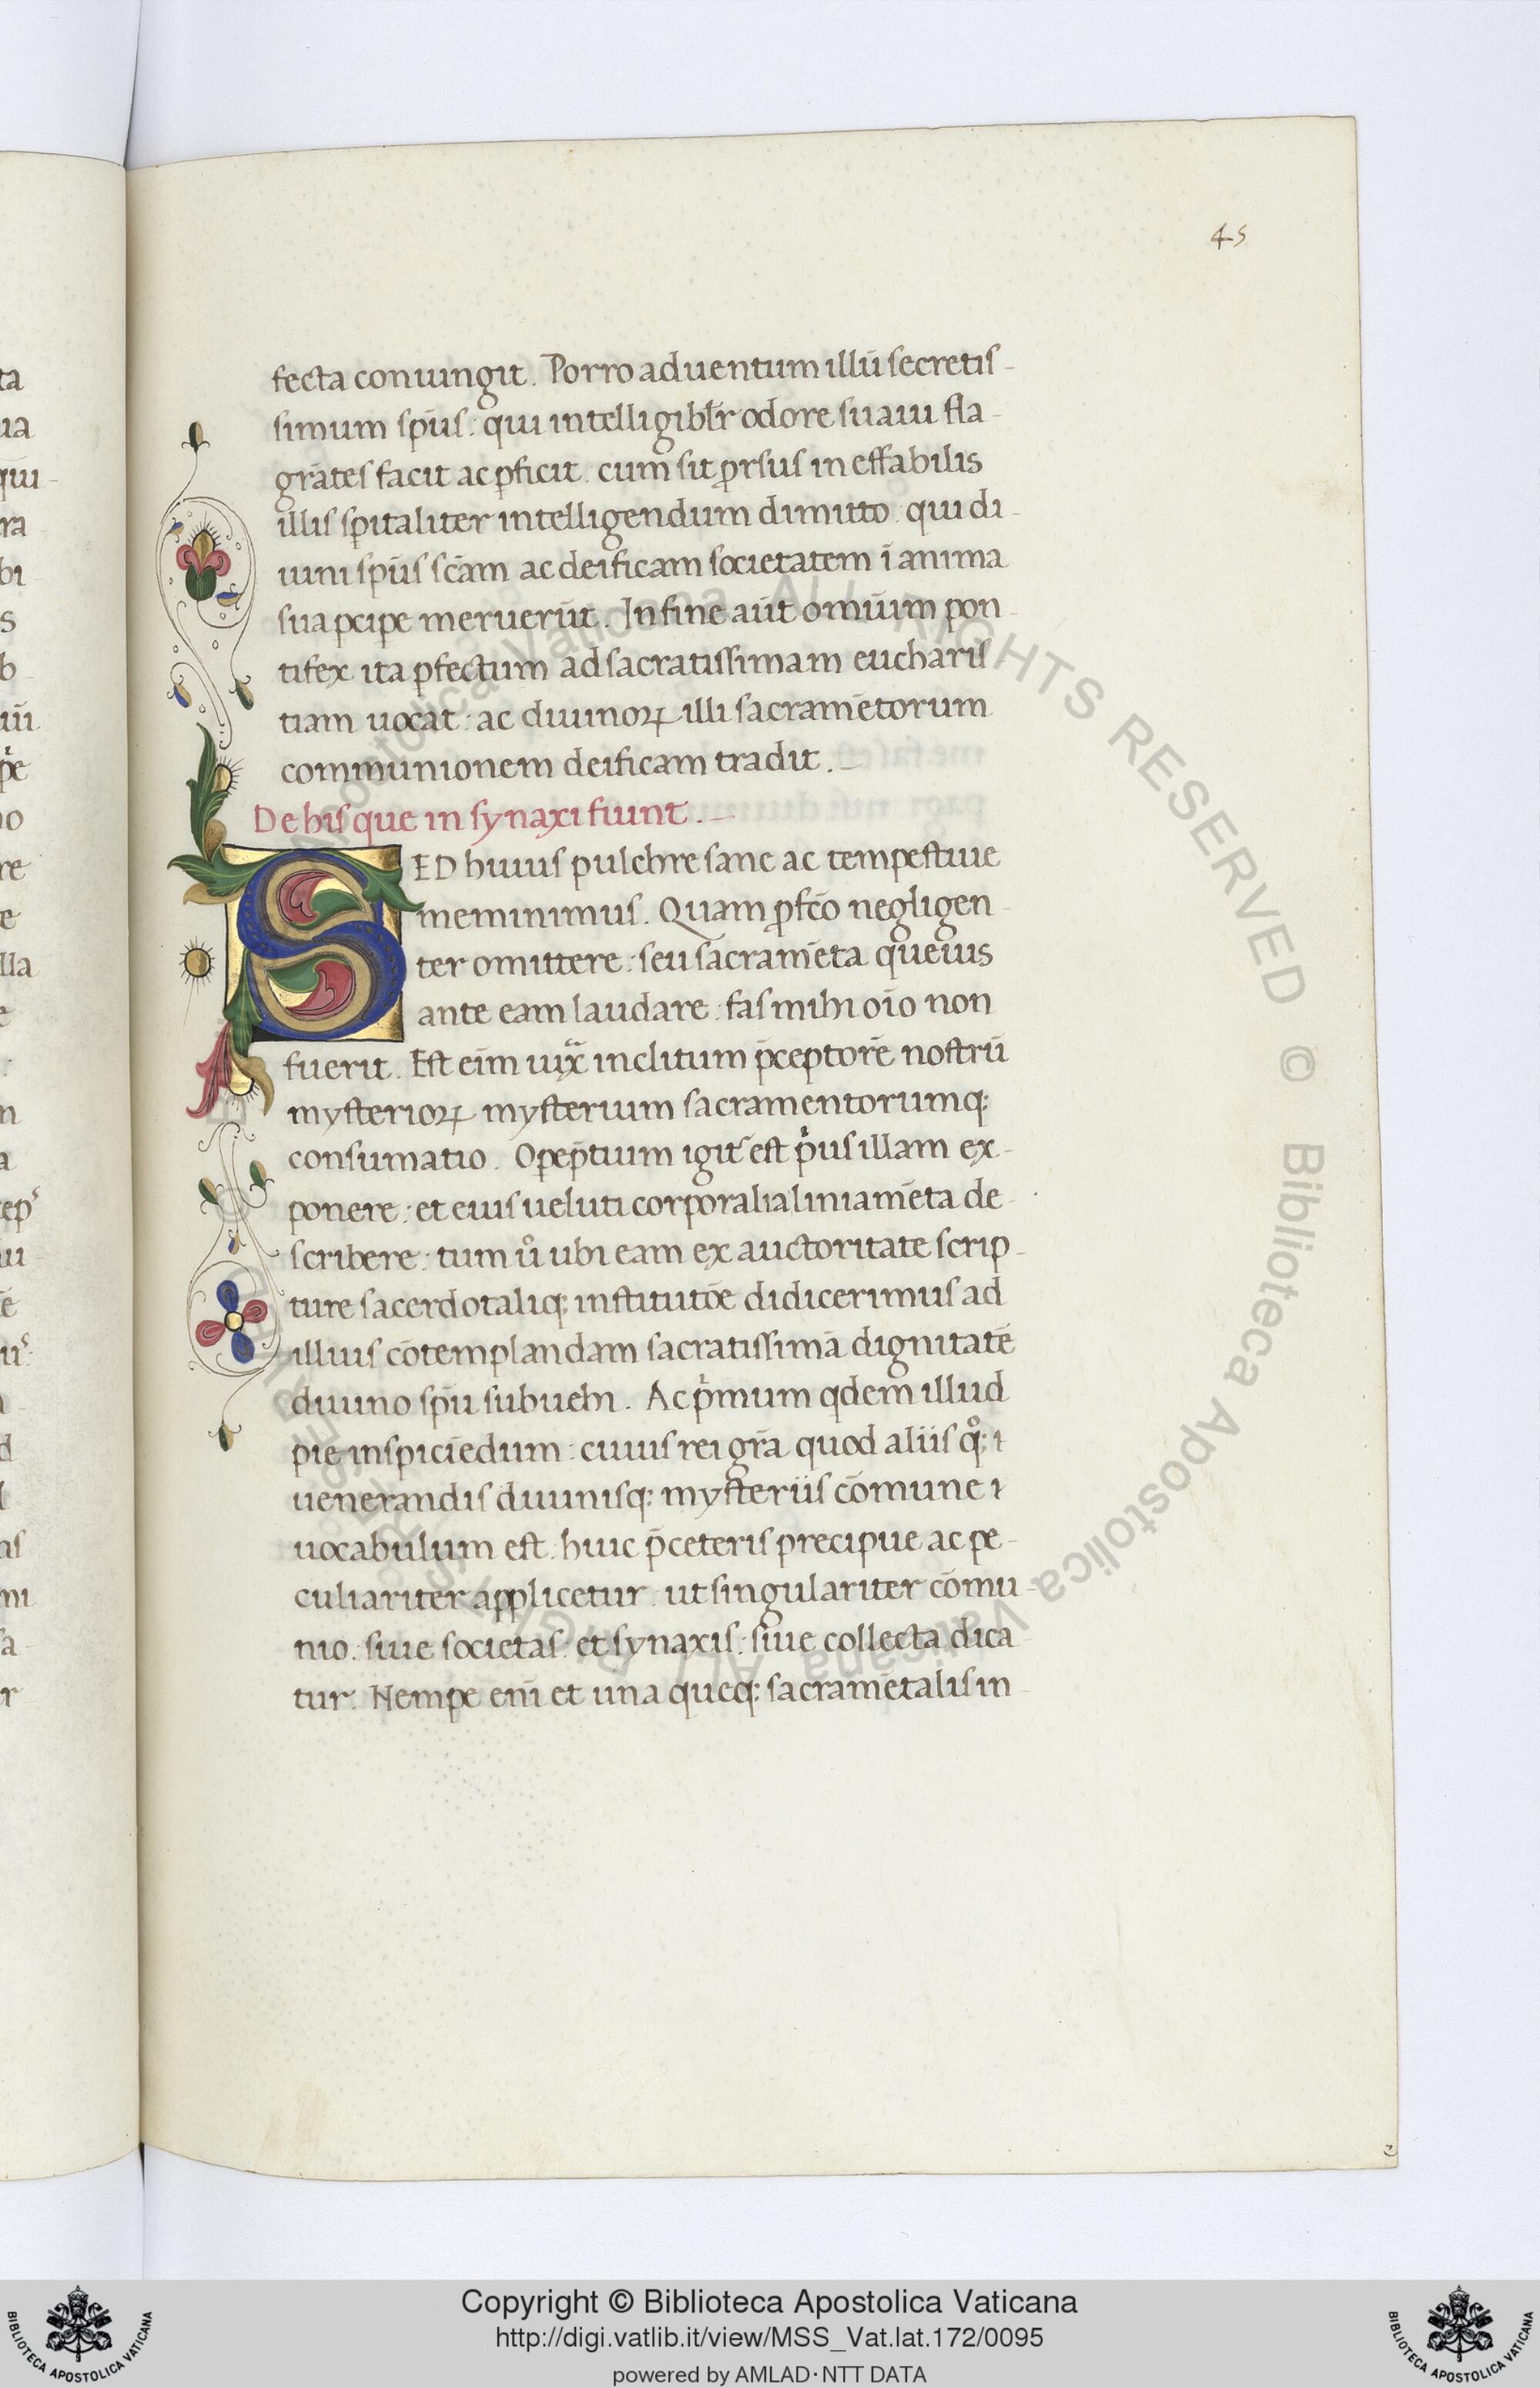 45
fecta coniungit. Porro aduentum illū secretis-
simum spūs: qui intelligibłr odore suaui fla-
grātes facit ac ꝑficit. cum sit ꝓrsus ineffabilis
illis spitaliter intelligendum dimitto: qui di-
uini spūs scām ac deificam societatem ī anima
sua ꝑcipe meruerūt. In fine aūt omiūm pon-
tifex ita ꝑfectum ad sacratissimam eucharis
tiam uocat: ac diuinoꝝ illi sacramētorum
communionem deificam tradit.
De his que in synaxi fiunt.
SED huius pulchre sane ac tempestiue
meminimus. Quam ꝓfcō negligen-
ter omittere: seu sacramēta queuis
ante eam laudare: fas mihi oīo non
fuerit. Est eīm uixͣ inclitum p̄ceptorē nostrū
mysterioꝝ mysterium sacramentorumq;
consumatio. Oꝑep̄tium igit̄ est pͥus illam ex-
ponere: et eius ueluti corporalia liniamēta de-
scribere: tum uͦ ubi eam ex auctoritate scrip-
ture sacerdotaliq; institutōe didicerimus ad
illius cōtemplandam sacratissimā dignitatē
diuino spū subuehi. Ac pͥmum qdem illud
pie inspiciēdum: cuius rei grā quod aliis qͦ; ⁊
uenerandis diuinisq; mysteriis cōmune ⁊
uocabulum est. huic p̄ ceteris precipue ac pe-
culiariter applicetur. ut singulariter cōmu-
nio. siue societas: et synaxis: siue collecta dica
tur. Nempe enī et una queq; sacramētalis in
ta
ua
qui-
ra
bi
s
b
pͥe
no
re
e
lla
e
n
a
tepˢ
ui-
ē
uˢ:
d
l
as
mi
sa-
r
Copyright © Biblioteca Apostolica Vaticana
http://digi.vatlib.it/view/MSS_Vat.lat.172/0095
powered by AMLAD·NTT DATA
BIBLIOTECA APOSTOLICA VATICANA
BIBLIOTECA APOSTOLICA VATICANA
ALL RIGHTS RESERVED © Biblioteca Apostolica Vaticana